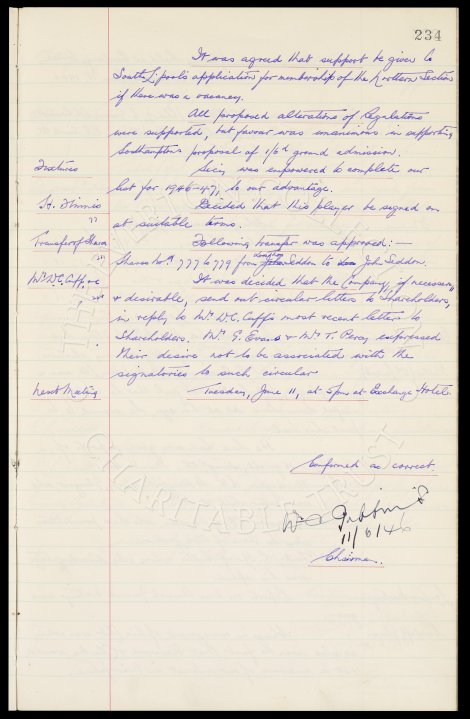 234
It was agreed that support be given to
South L'pools application for membership of the Northern Section
if there was a vacancy.
All proposed alterations of Regulations
were supported, but favour was unanimous in supporting
Southamptons proposal of 1/6d ground admission.
Fixtures
Secy. was empowered to complete our
list for 1946-47, to our advantage.
Decided that this player be signed on
at suitable terms.
Transfer of Shares
Following transfer was approved:-
Shares Nos 777 to 779 from Seddon to John Seddon.
Mr. W.C. Cuff
It was decided that the Company, if necessary
& desirable, send out circular letters to Shareholders,
in reply to Mr. W.C. Cuffs most recent letters to
Shareholders. Mr. G. Evans & Mr. T. Percy expressed
their desire not to be associated with the
signatories to such circular
Next Meeting
Tuesday, June 11, at 5pm at Exchange Hotel.
Confirmed as correct.
11/6/46
Chairman.
THE
CHARITABLE TRUST